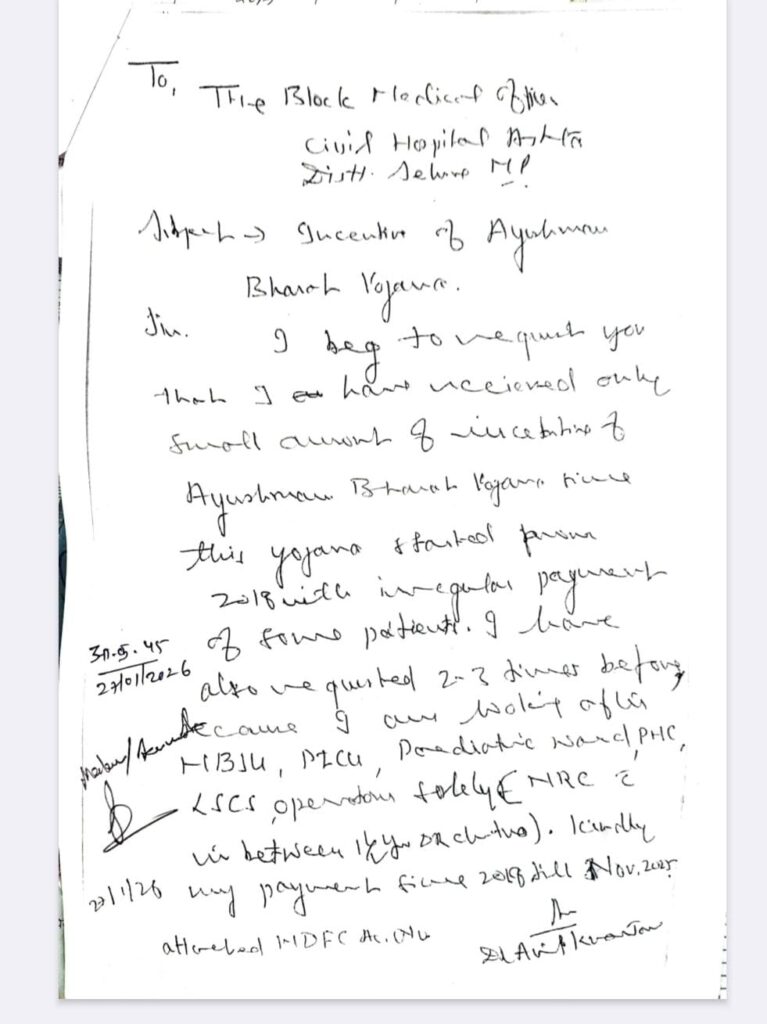 To,
The Block Medical Officer
Civil Hospital Ashta
Distt. Sehore MP
Subject → Incentive of Ayushman
Bharat Yojana.
Sir.
I beg to request you
that I have recieved only
small amount of incentive of
Ayushman Bharat Yojana since
this yojana started from
2018 with irregular payment
of some patients. I have
also requested 2-3 times before,
because I am looking after
NBSU, PICU, Paediatric ward, PHC,
LSCS, operations solely ( NRC
in between 1½ yr ). Kindly
my payment since 2018 till Nov. 2025
attached HDFC Ac. No
Dr
27/01/2026
27/1/26